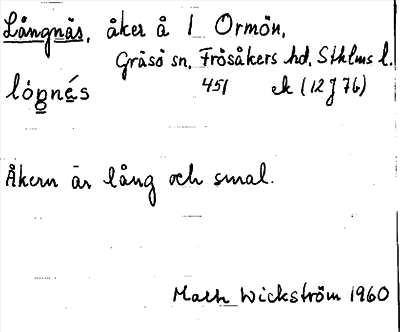 Långnäs, åker å 1 Ormön,
Gräsö sn, Frösåkers hd, Sthlms l.
451 ek (12J76)
lóŋnés
Åkern är lång och smal.
Math Wickström 1960